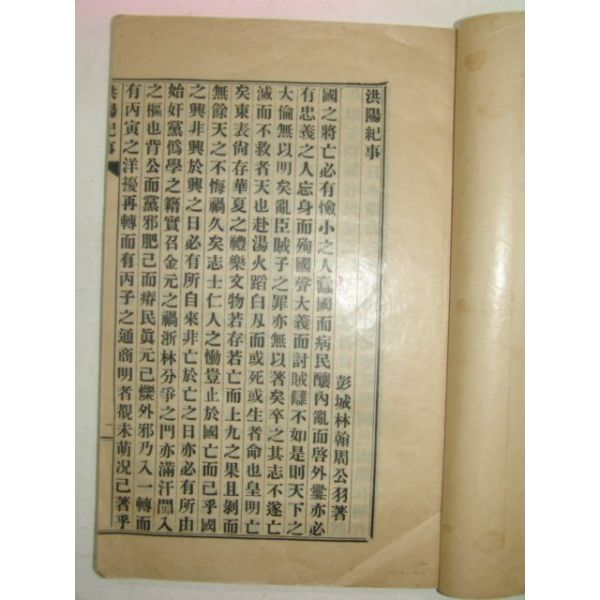 洪陽紀事
彭城林翰周公羽著
國之將亡必有憸小之人蠹國而病民釀內亂而啓外釁亦必
有忠義之人忘身而殉國聲大義而討賊讎不如是則天下之
大倫無以明矣亂臣賊子之罪亦無以著矣卒之其志不遂亡
滅而不救者天也赴湯火蹈白刃而或死或生者命也皇明亡
矣東表尙存華夏之禮樂文物若存若亡而上九之果且剝而
無餘天之不悔禍久矣志士仁人之慟豈止於國亡而已乎國
之興非興於興之日必有所自來非亡於亡之日亦必有所由
始奸黨僞學之籍實召金元之禍浙林分爭之門亦滿汗闖入
之樞也背公而黨邪肥己而瘠民眞元已爍外邪乃入一轉而
有丙寅之洋擾再轉而有丙子之通商明者覩未萌况已著乎
洪陽紀事
一